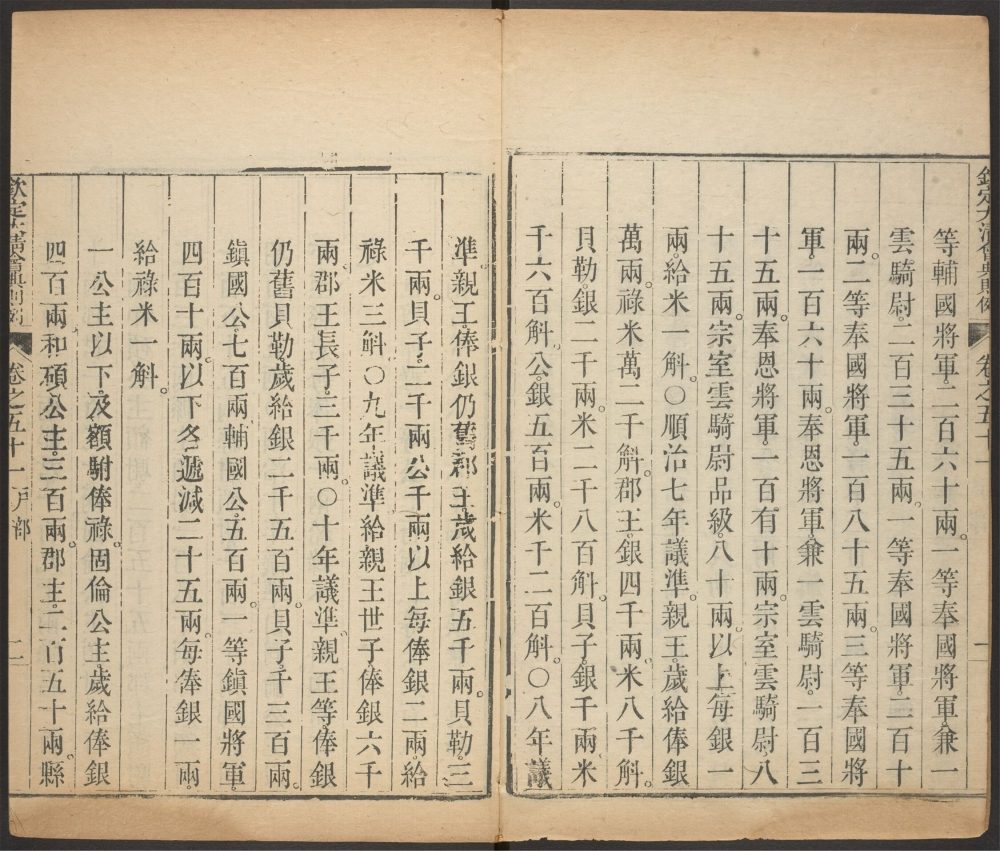 欽定大清會典則例 卷之五十一 一
等輔國將軍二百六十兩。一等奉國將軍兼一
雲騎尉。二百三十五兩。一等奉國將軍二百十
兩。二等奉國將軍一百八十五兩。三等奉國將
軍。一百六十兩。奉恩將軍。兼一雲騎尉。一百三
十五兩。奉恩將軍一百有十兩。宗室雲騎尉。八
十五兩。宗室雲騎尉品級。八十兩。以上每銀一
兩。給米一斛。〇順治七年議準。親王。歲給俸銀
萬兩。祿米萬二千斛。郡王。銀四千兩。米八千斛。
貝勒。銀二千兩。米二千八百斛。貝子。銀千兩。米
千六百斛。公。銀五百兩。米千二百斛。〇八年議
準。親王。俸銀仍舊。郡王。歲給銀五千兩。貝勒。三
千兩。貝子。二千兩。公千兩。以上每俸銀二兩。給
祿米三斛。〇九年。議準給親王世子俸銀六千
兩。郡王長子。三千兩。〇十年議準。親王等俸銀
仍舊。貝勒歲給銀二千五百兩。貝子。千三百兩。
鎮國公七百兩。輔國公。五百兩。一等鎮國將軍。
四百十兩。以下各遞減二十五兩。每俸銀一兩。
給祿米一斛。
一 公主以下。及額駙俸祿。固倫公主。歲給俸銀
四百兩。和碩公主。三百兩。郡主。二百五十兩。縣
欽定大清會典則例 卷之五十一 戶部 二